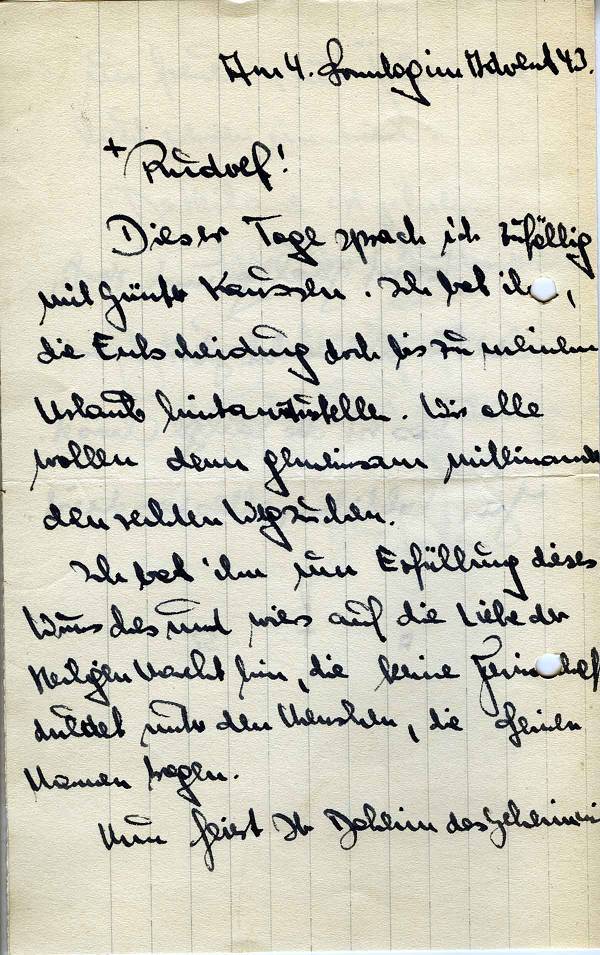 Am 4. Sonntag im Advent 43.
+
Rudolf!
Dieser Tage sprach ich zufällig
mit Günter Kaussen. Ich bat ihn,
die Entscheidung doch bis zu meinem
Urlaub hintanzustellen. Wir alle
wollen dann gemeinsam miteinander
den rechten Weg suchen.
Ich bat ihn um Erfüllung dieses
Wunsches und wies auf die Liebe der
Heiligen Nacht hin, die keine Feindschaft
duldet unter den Menschen, die Seinen
Namen tragen.
Nun feiert Ihr Daheim das Geheimnis